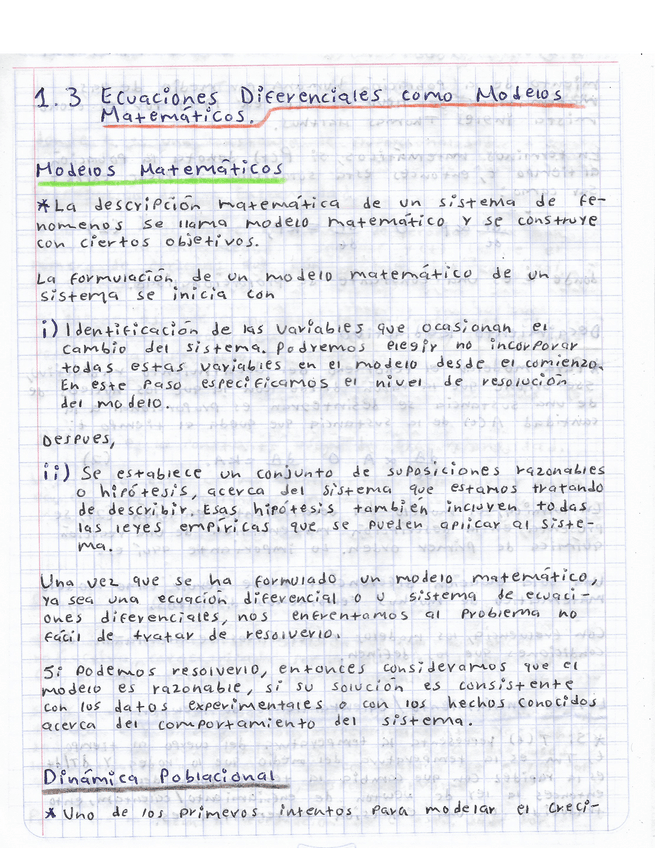 1.3 Ecuaciones Diferenciales como Modelos
Matemáticos.
Modelos Matemáticos
*La descripción matemática de un sistema de fe-
nomenos se llama modelo matemático y se construye
con ciertos objetivos.
La formulación de un modelo matemático de un
sistema se inicia con
i) Identificación de las variables que ocasionan el
cambio del sistema. Podremos elegir no incorporar
todas estas variables en el modelo desde el comienzo.
En este paso especificamos el nivel de resolución
del modelo.
Despues,
ii) Se establece un conjunto de suposiciones razonables
o hipótesis, acerca del sistema que estamos tratando
de describir. Esas hipótesis tambien incluyen todas
las leyes empíricas que se pueden aplicar al siste-
ma.
Una vez que se ha formulado un modelo matemático,
ya sea una ecuación diferencial o u sistema de ecuaci-
ones diferenciales, nos enfrentamos al problema no
fácil de tratar de resolverlo.
Si podemos resolverlo, entonces consideramos que el
modelo es razonable, si su solución es consistente
con los datos experimentales o con los hechos conocidos
acerca del comportamiento del sistema.
Dinámica Poblacional
* Uno de los primeros intentos para modelar el creci-